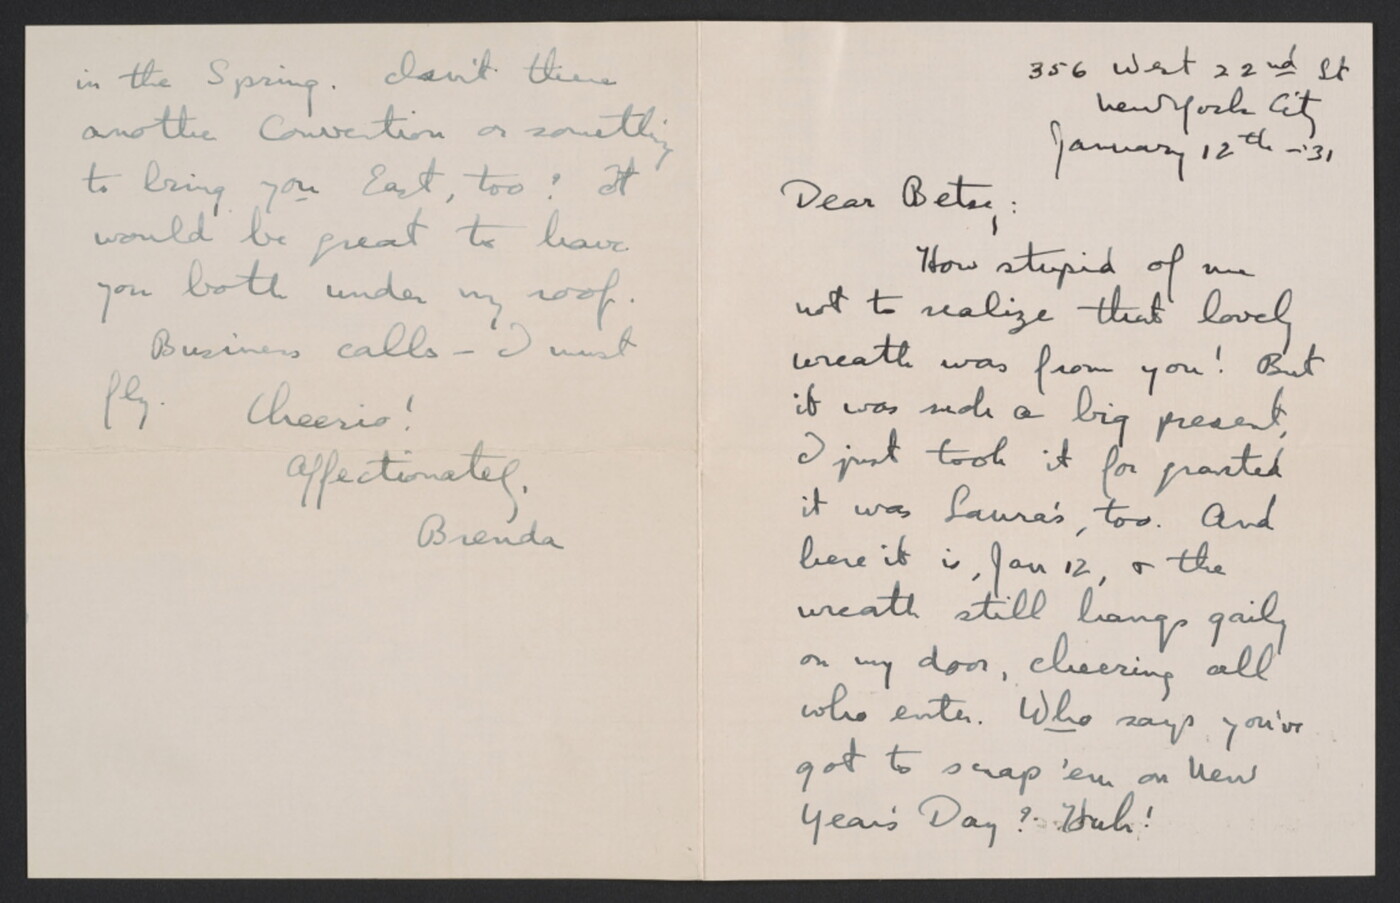 356 West 22nd St
New York City
January 12th -'31
Dear Betsy:
How stupid of me
not to realize that lovely
wreath was from you! But
it was such a big present,
I just took it for granted
it was Laura's, too. And
here it is, Jan 12, & the
wreath still hangs gaily
on my door, cheering all
who enter. Who says you've
got to scrap 'em on New
Year's Day? Huh!
in the Spring. Isn't there
another Convention or something
to bring you East, too? It
would be great to have
you both under my roof.
Business calls - I must
fly. Cheerio!
Affectionately,
Brenda